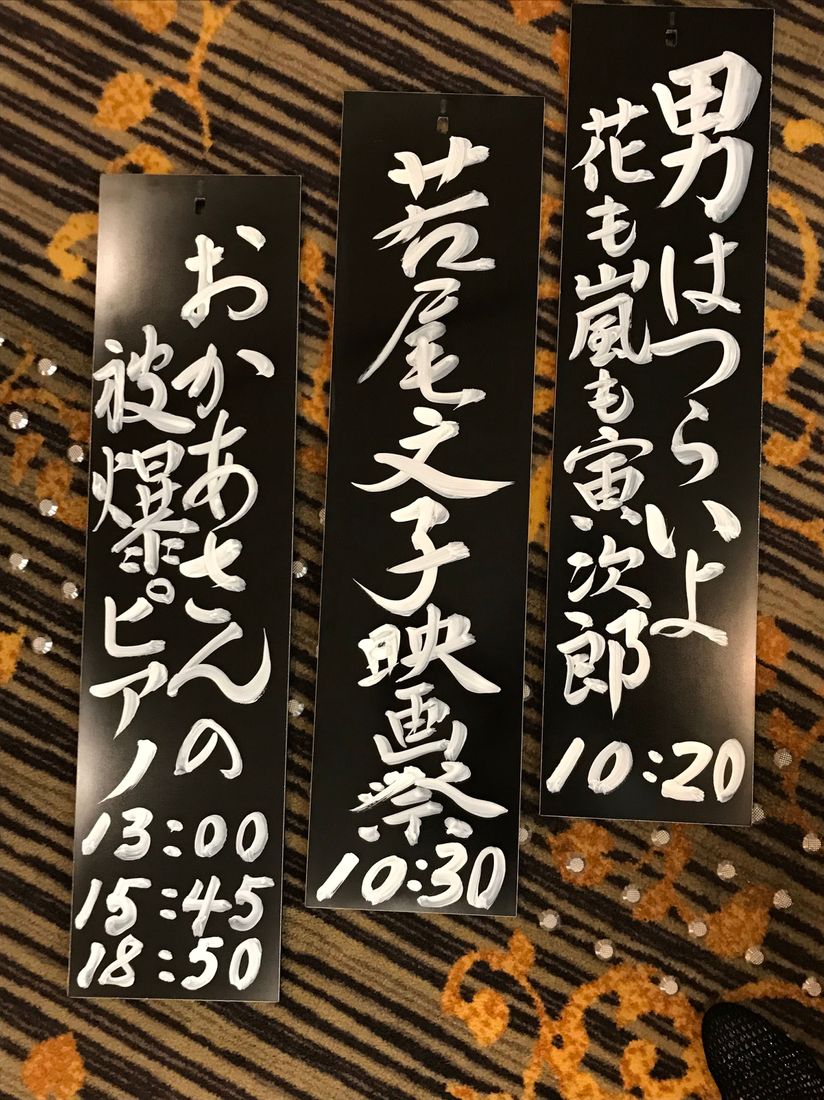 男はつらいよ
花も嵐も寅次郎
10:20
若尾文子映画祭
10:30
おかあさんの
被爆ピアノ
13:00
15:45
18:50